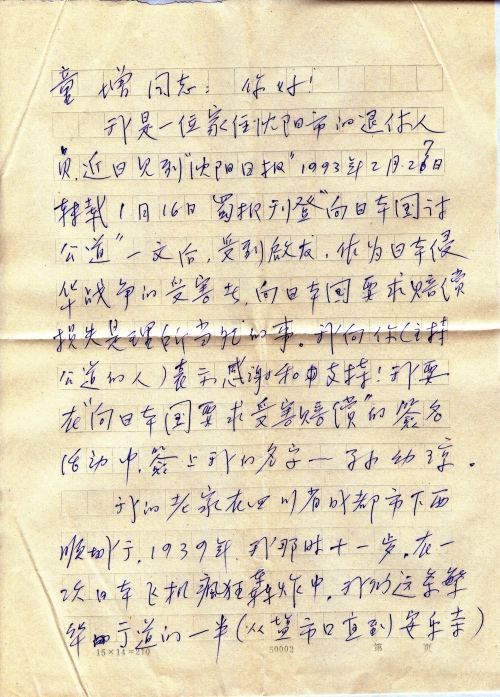 童增同志：你好！
我是一位家住沈阳市的退休人
员，近日见到"沈阳日报"1993年2月27日
转载1月16日蜀报刊登"向日本国讨
公道"一文后，受到启发，作为日本侵
华战争的受害者，向日本国要求赔偿
损失是理所当然的事。我向你（主持
公道的人）表示感谢和支持！我要
在"向日本国要求受害赔偿"的签名
活动中，签上我的名字—孙幼琼。
我的老家在四川省成都市下西
顺城街，1939年我那时十一岁。在一
次日本飞机疯狂轰炸中，我们这条繁
华街道的一半（从盐市口直到安乐寺）
15×14=210 50002 第 页